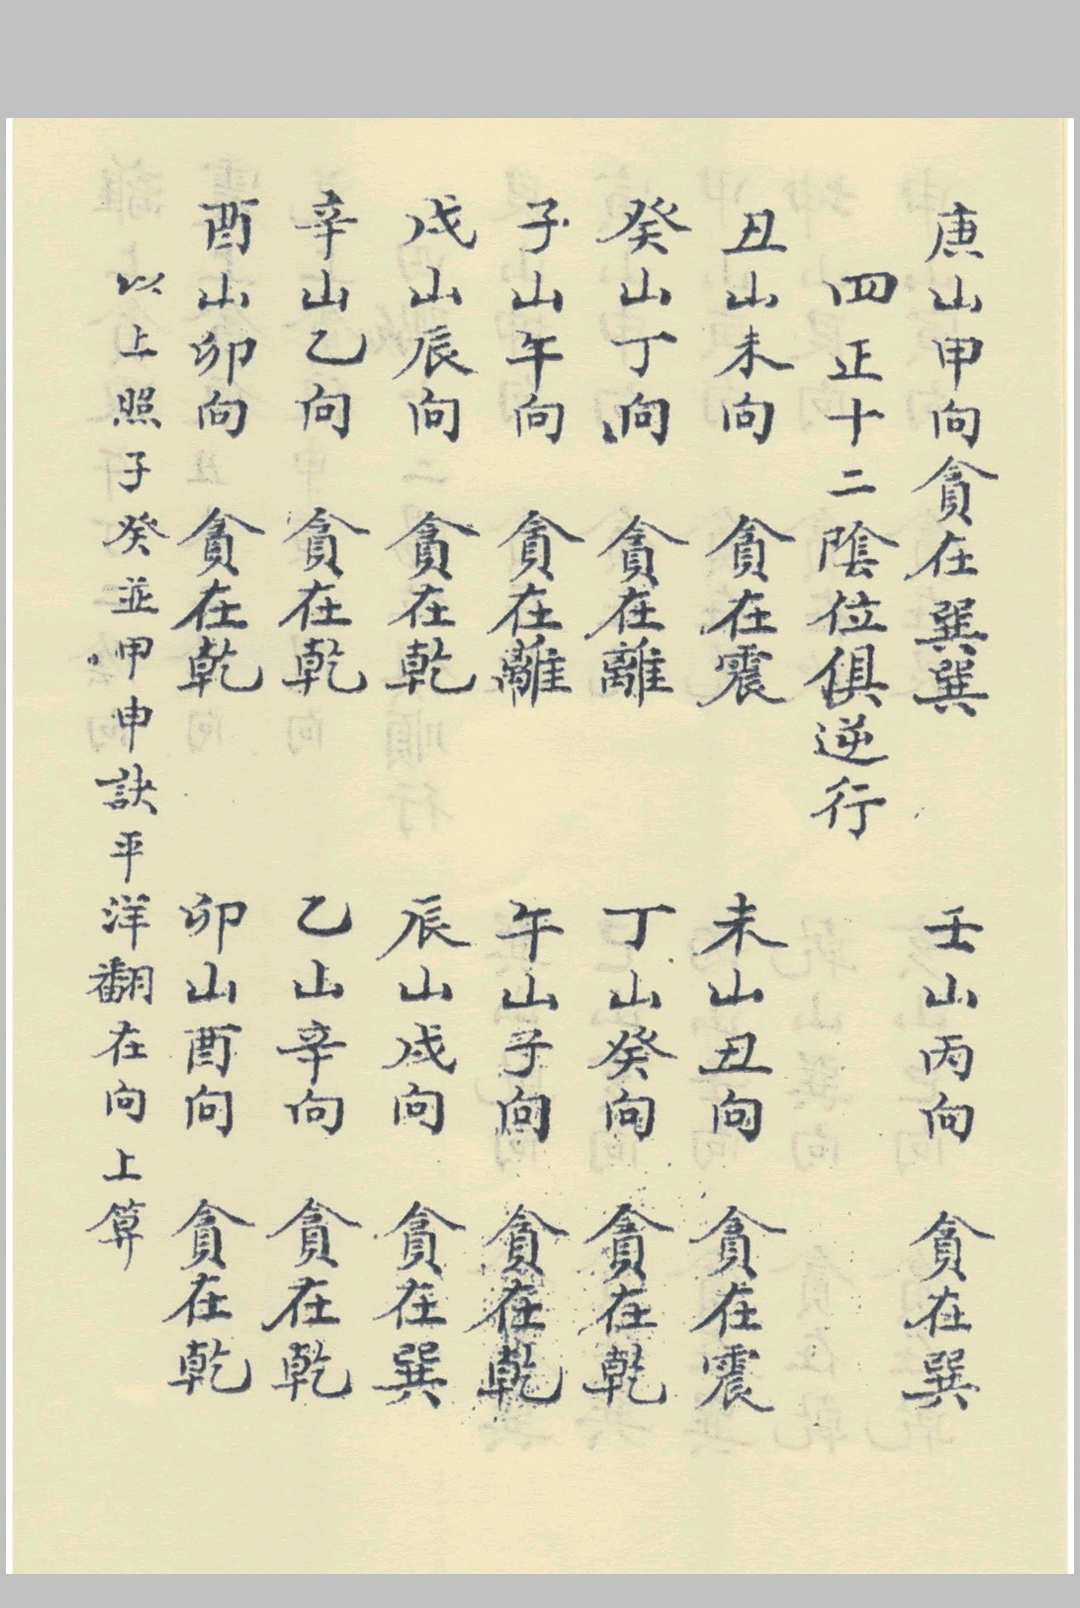 庚山甲向貪在巽巽
壬山丙向 貪在巽
四正十二陰位俱逆行
丑山未向 貪在震
未山丑向 貪在震
癸山丁向 貪在離
丁山癸向 貪在乾
子山午向 貪在離
午山子向 貪在乾
戌山辰向 貪在乾
辰山戌向 貪在巽
辛山乙向 貪在乾
乙山辛向 貪在乾
酉山卯向 貪在乾
卯山酉向 貪在乾
以上照子癸並甲申訣平洋翻在向上算